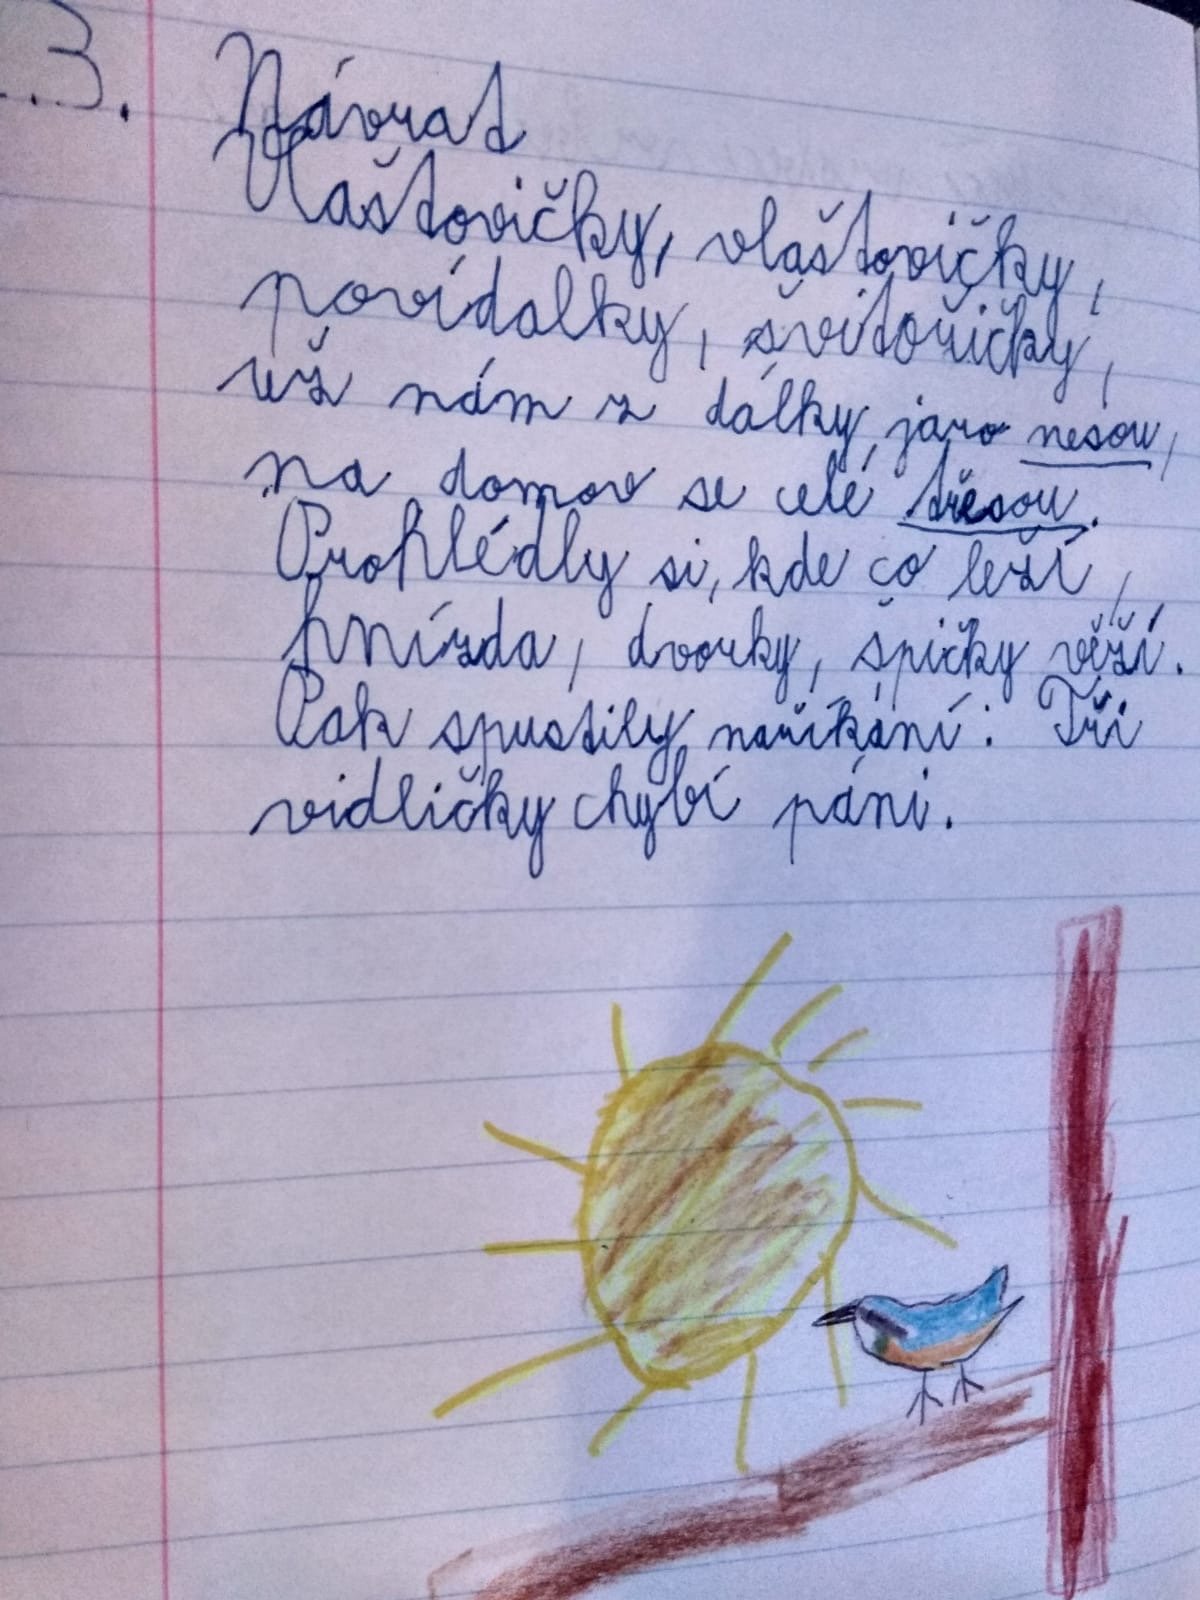 .3.
Návrat
Vlaštovičky, vlaštovičky,
povídalky, švitořičky,
už nám z dálky jaro nesou,
na domov se celé třesou.
Prohlédly si, kde co leží,
hnízda, dvorky, špičky věží.
Pak spustily naříkání: Tři
vidličky chybí páni.